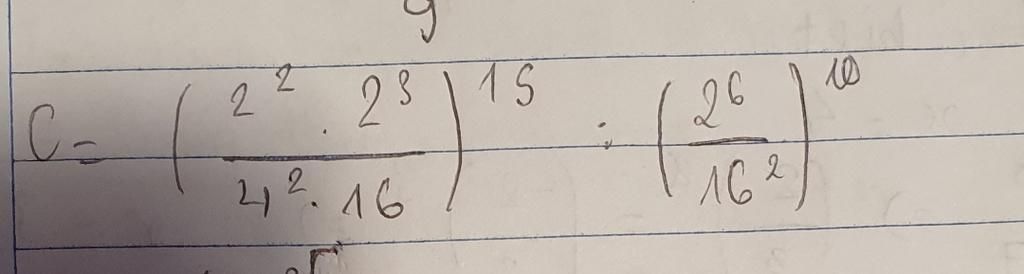 C = (2² · 2³ / 4² · 16)¹⁵ : (2⁶ / 16²)¹⁰